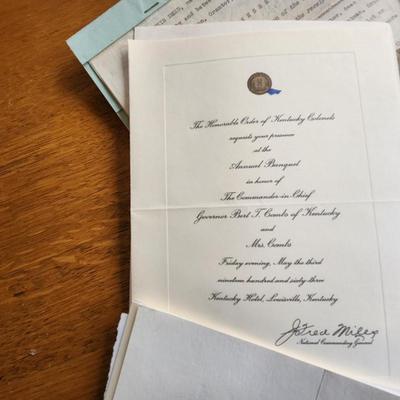 The Honorable Order of Kentucky Colonels
requests your presence
at the
Annual Banquet
in honor of
The Commander-in-Chief
Governor Bert T. Combs of Kentucky
and
Mrs. Combs
Friday evening, May the third
nineteen hundred and sixty-three
Kentucky Hotel, Louisville, Kentucky
J. Fred Miles
National Commanding General